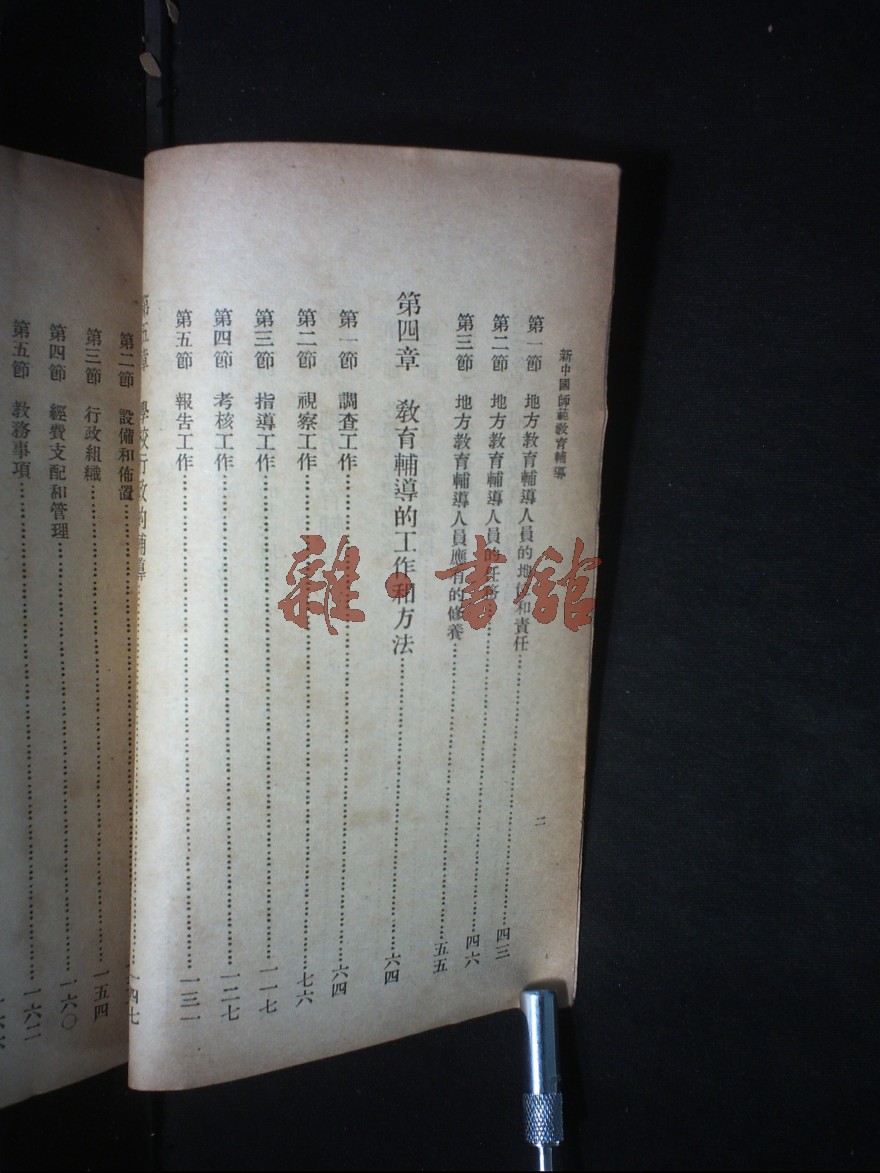 新中國師範教育輔導
二
第一節 地方教育輔導人員的地位和責任 四三
第二節 地方教育輔導人員的任務 四六
第三節 地方教育輔導人員應有的修養 五五
第四章 教育輔導的工作和方法 六四
第一節 調查工作 六四
第二節 視察工作 七六
第三節 指導工作 一一七
第四節 考核工作 一二七
第五節 報告工作 一三一
第五章 學校行政的輔導
第二節 設備和佈置 一四七
第三節 行政組織 一五四
第四節 經費支配和管理 一六〇
第五節 教務事項 一六二
雜·書館